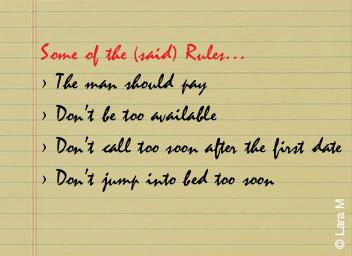 Some of the (said) Rules...
› The man should pay
› Don't be too available
› Don't call too soon after the first date
› Don't jump into bed too soon
© Lara M